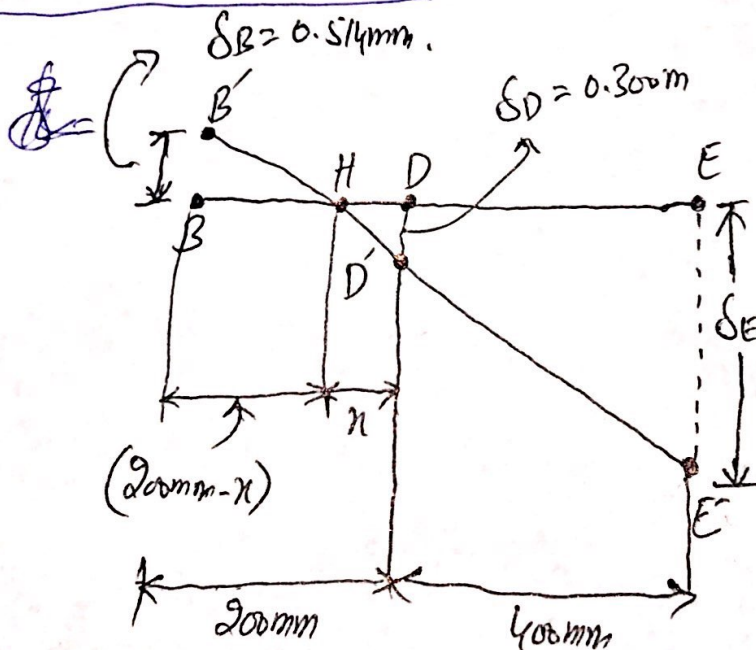 δB = 0.514mm.
B′
δD = 0.300m
H D E
B
D′
δE
x
(200mm-x)
E′
200mm
400mm